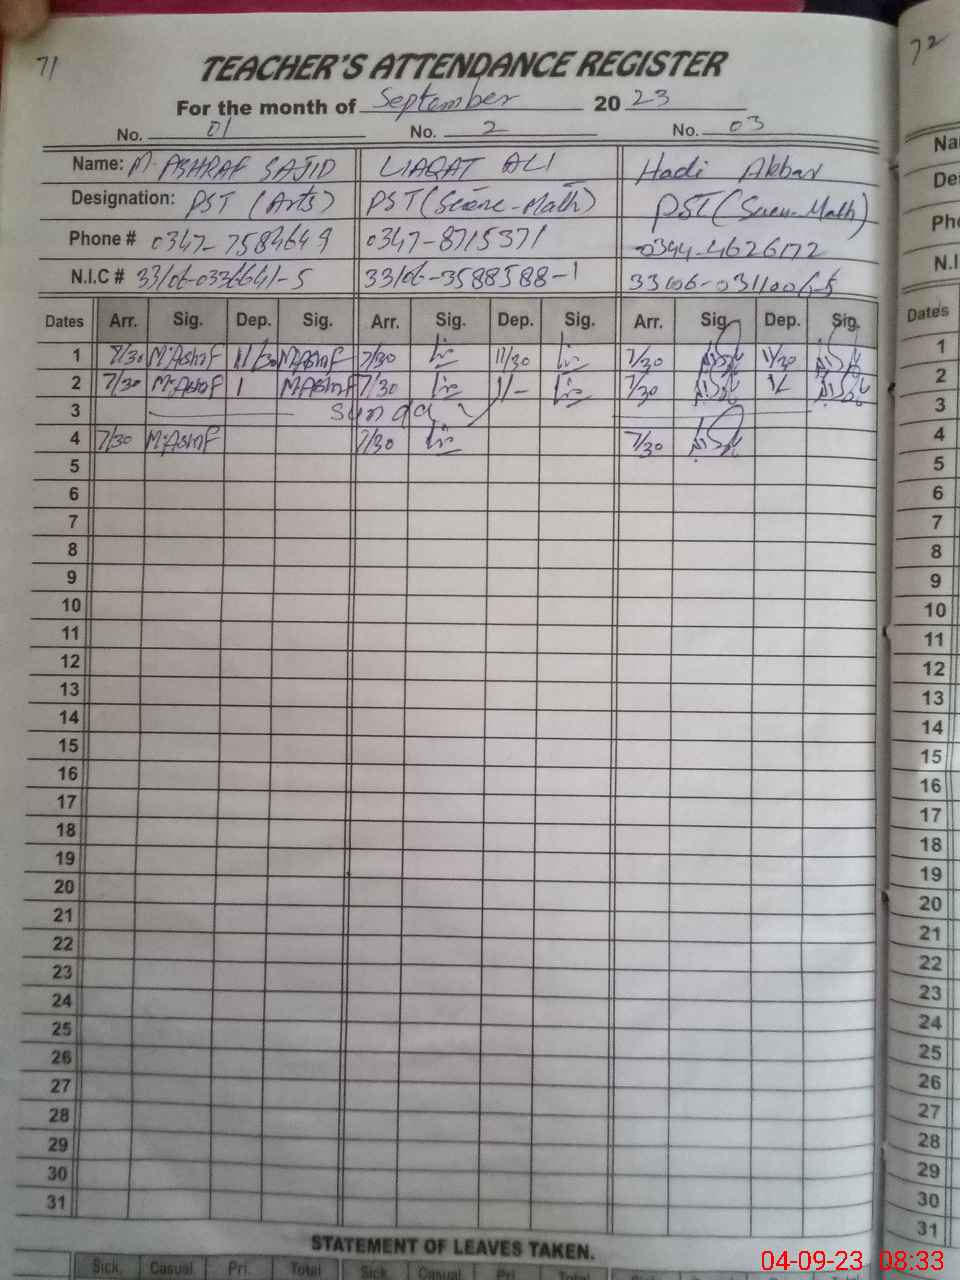 71
TEACHER'S ATTENDANCE REGISTER
72
For the month of September 2023
No. 01 No. 2 No. 03
Name: M. ASHRAF SAJID LIAQAT ALI Hadi Akbar
Designation: PST (Arts) PST (Science-Math) PST (Scien-Math)
Phone # 0347-7584649 0347-8715371 0344-4626172
N.I.C # 33106-0336641-5 33106-3588588-1
Dates Arr. Sig. Dep. Sig. Arr. Sig. Dep. Sig. Arr. Sig. Dep. Sig. Dates
1 7/30 M.Ashraf 11/30 M.Ashraf 7/30 11/30 7/30 11/30 1
2 7/30 M.Ashraf M.Ashraf 7/30 7/30 2
3 Sunday 3
4 7/30 M.Ashraf 7/30 7/30 4
5 5
6 6
7 7
8 8
9 9
10 10
11 11
12 12
13 13
14 14
15 15
16 16
17 17
18 18
19 19
20 20
21 21
22 22
23 23
24 24
25 25
26 26
27 27
28 28
29 29
30 30
31 31
STATEMENT OF LEAVES TAKEN.
Sick. Casual Pri. Total Sick. Casual Pri. Total Sick.
04-09-23 08:33